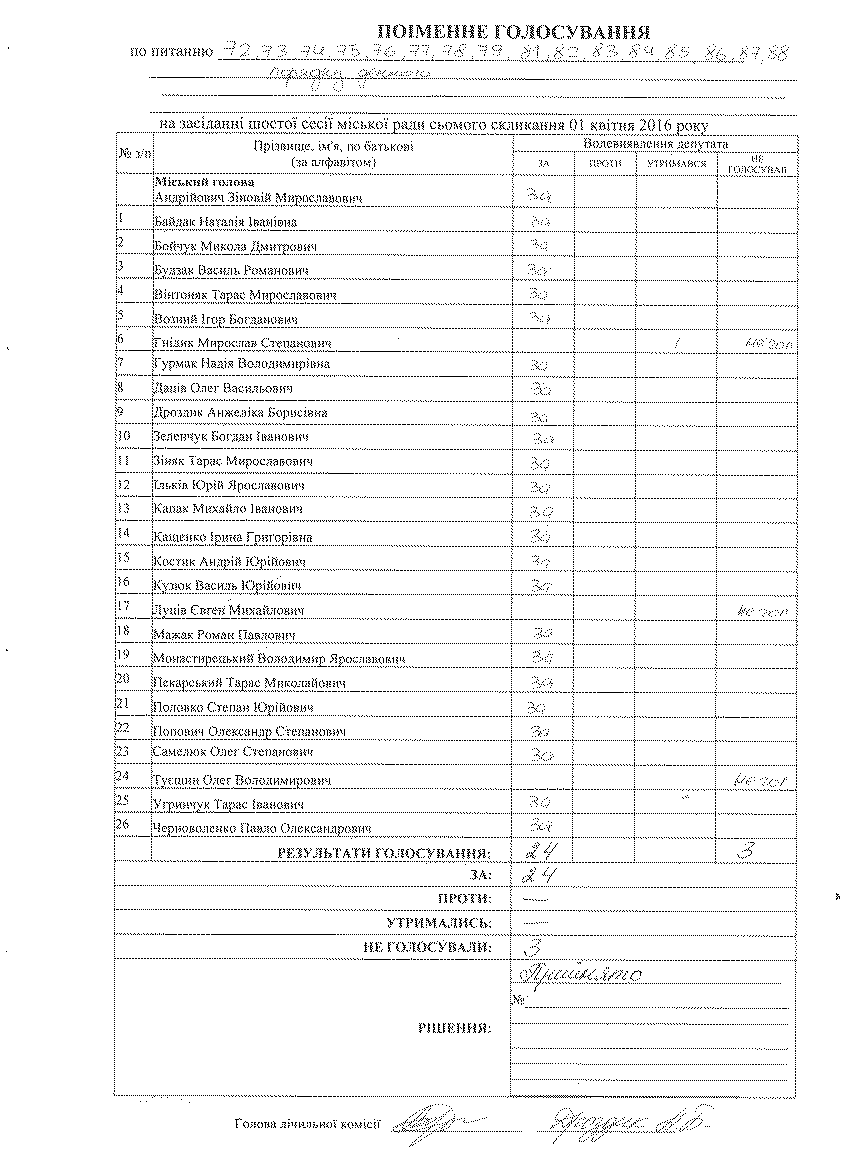 ПОІМЕННЕ ГОЛОСУВАННЯ
по питанню 72,73,74,75,76,77,78,79, 81,82,83,84,85,86,87,88
порядку денного
на засіданні шостої сесії міської ради сьомого скликання 01 квітня 2016 року
№ з/п Прізвище, ім'я, по батькові (за алфавітом) Волевиявлення депутата
ЗА ПРОТИ УТРИМАВСЯ НЕ ГОЛОСУВАВ
Міський голова
Андрійович Зіновій Мирославович За
1 Байдак Наталія Іванівна За
2 Бойчук Микола Дмитрович За
3 Будзак Василь Романович За
4 Вінтоняк Тарас Мирославович За
5 Возний Ігор Богданович За
6 Гнідик Мирослав Степанович не гол
7 Гурмак Надія Володимирівна За
8 Даців Олег Васильович За
9 Дроздик Анжеліка Борисівна За
10 Зеленчук Богдан Іванович За
11 Зіняк Тарас Мирославович За
12 Ільків Юрій Ярославович За
13 Капак Михайло Іванович За
14 Кащенко Ірина Григорівна За
15 Костик Андрій Юрійович За
16 Кузюк Василь Юрійович За
17 Луців Євген Михайлович не гол
18 Мажак Роман Павлович За
19 Монастирецький Володимир Ярославович За
20 Пекарський Тарас Миколайович За
21 Половко Степан Юрійович За
22 Попович Олександр Степанович За
23 Самелюк Олег Степанович За
24 Туєшин Олег Володимирович не гол
25 Угринчук Тарас Іванович За
26 Черноволенко Павло Олександрович За
РЕЗУЛЬТАТИ ГОЛОСУВАННЯ: 24 3
ЗА: 24
ПРОТИ: —
УТРИМАЛИСЬ: —
НЕ ГОЛОСУВАЛИ: 3
Прийнято
№
РІШЕННЯ:
Голова лічильної комісії Дроздик А.Б.